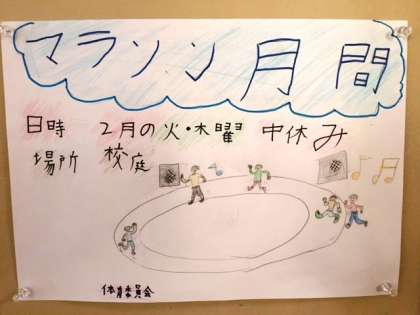 マラソン月間
日時 2月の火・木曜 中休み
場所 校庭
体育委員会